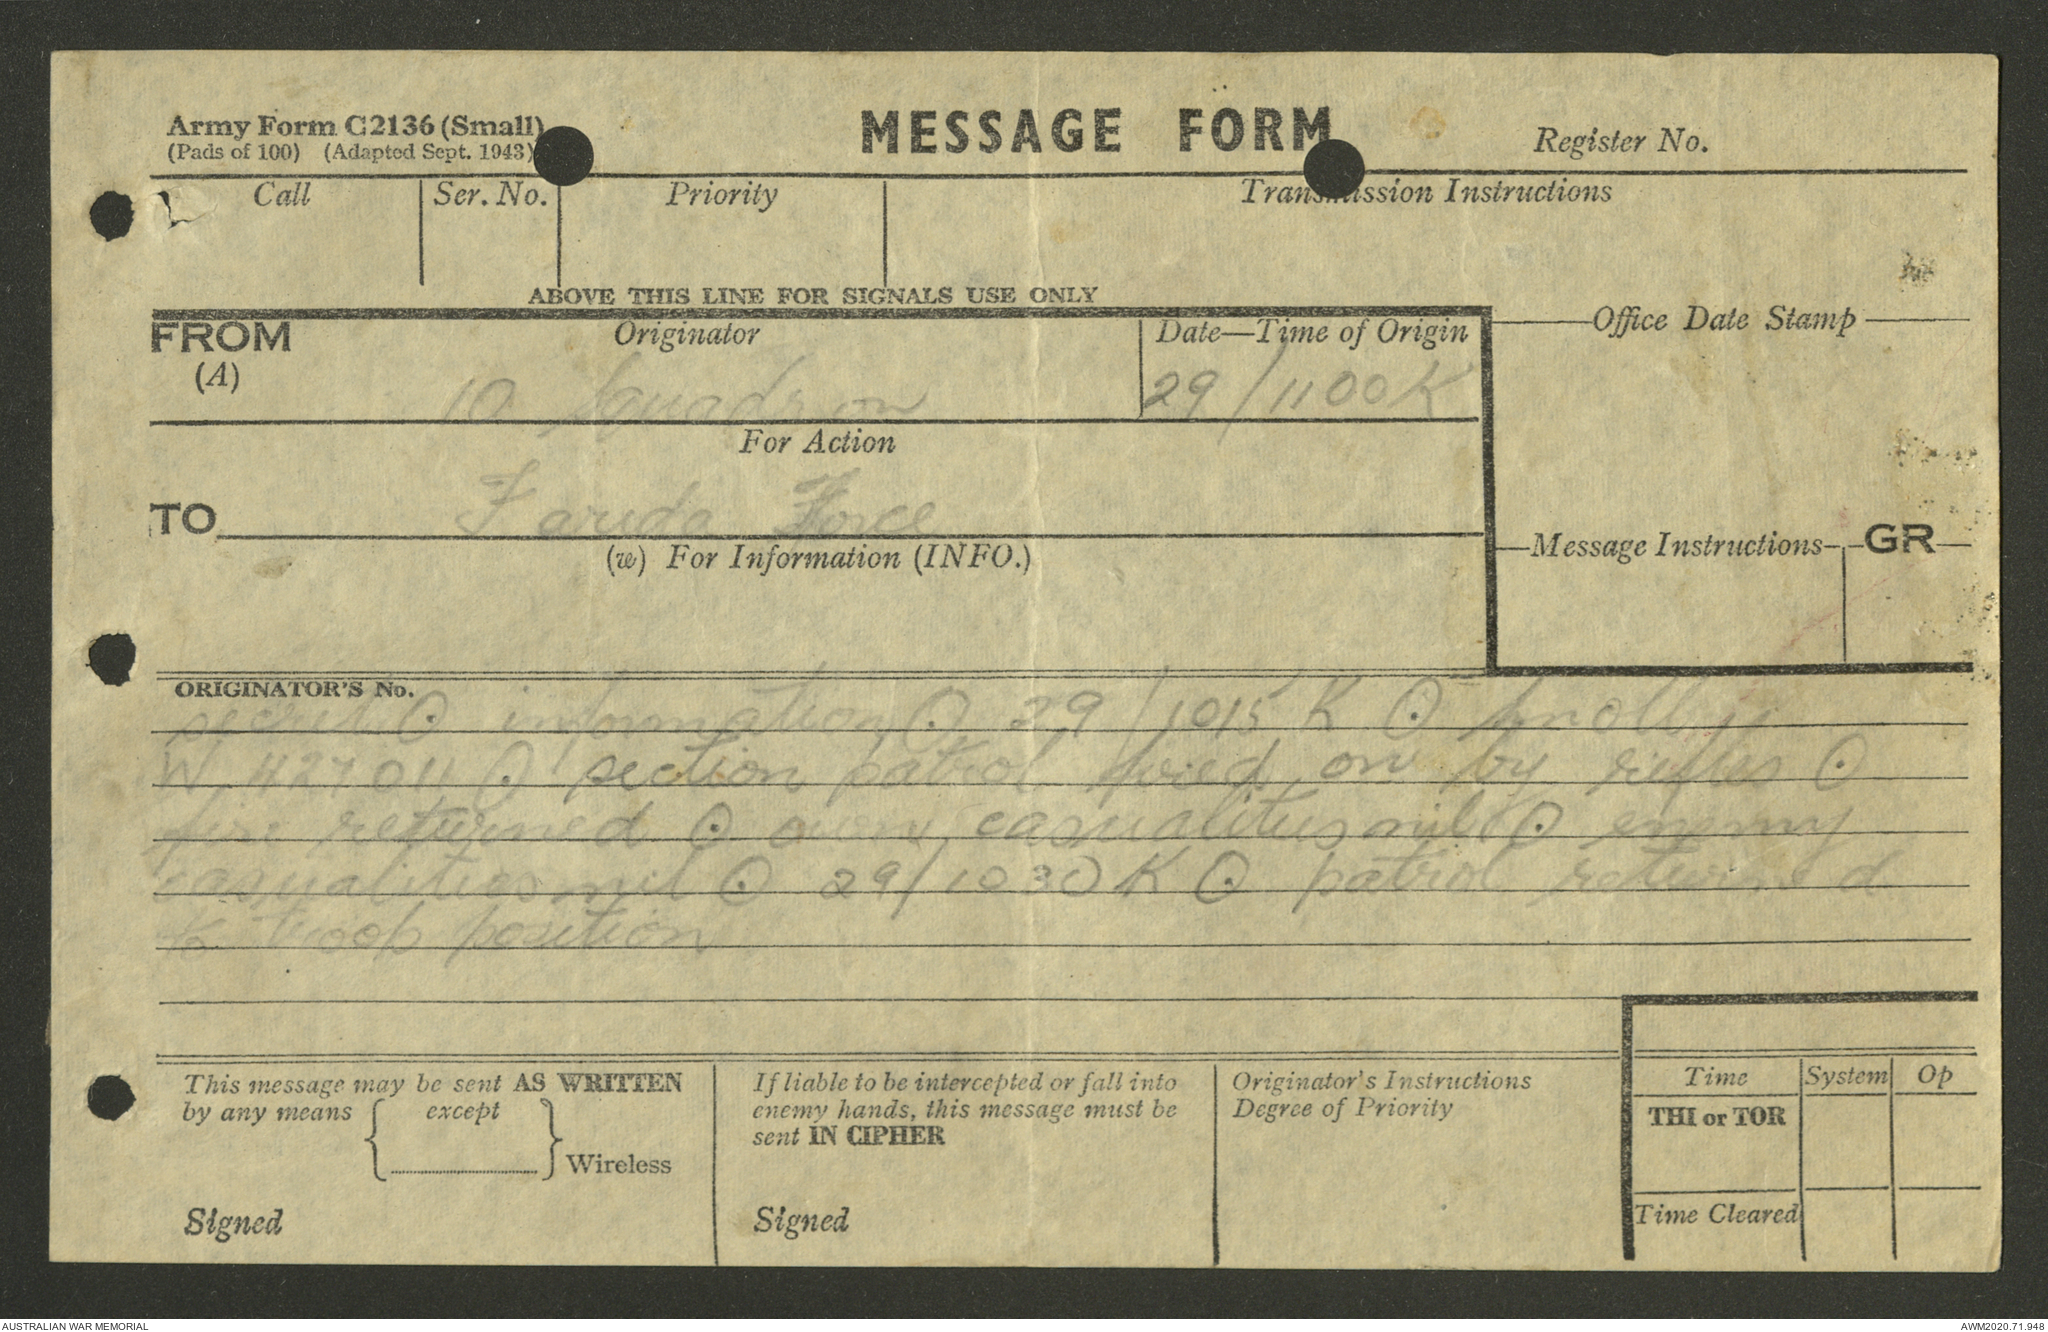 Army Form C2136 (Small)
(Pads of 100) (Adapted Sept. 1943)
MESSAGE FORM
Register No.
Call
Ser. No.
Priority
Transmission Instructions
ABOVE THIS LINE FOR SIGNALS USE ONLY
FROM
(A)
Originator
10 Squadron
Date—Time of Origin
29/1100K
Office Date Stamp
For Action
TO
Faruda Force
(w) For Information (INFO.)
Message Instructions
GR
ORIGINATOR'S No.
secret ⊙ information ⊙ 29/1015 K ⊙ knoll
⊙ section patrol fired on by rifles ⊙
fire returned ⊙ own casualitiesnil ⊙ enemy
casualitiesnil ⊙ 29/1030 K ⊙ patrol returned
to troop position
This message may be sent AS WRITTEN
by any means except
Wireless
Signed
If liable to be intercepted or fall into
enemy hands, this message must be
sent IN CIPHER
Signed
Originator's Instructions
Degree of Priority
Time
System
Op
THI or TOR
Time Cleared
AUSTRALIAN WAR MEMORIAL
AWM2020.71.948